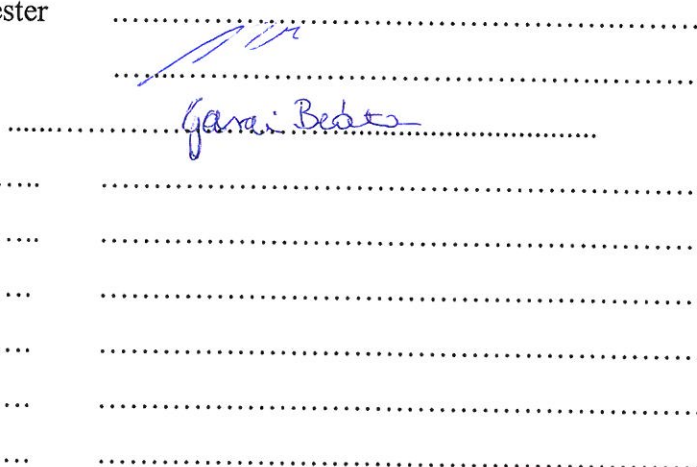 ester
Garai Beáta